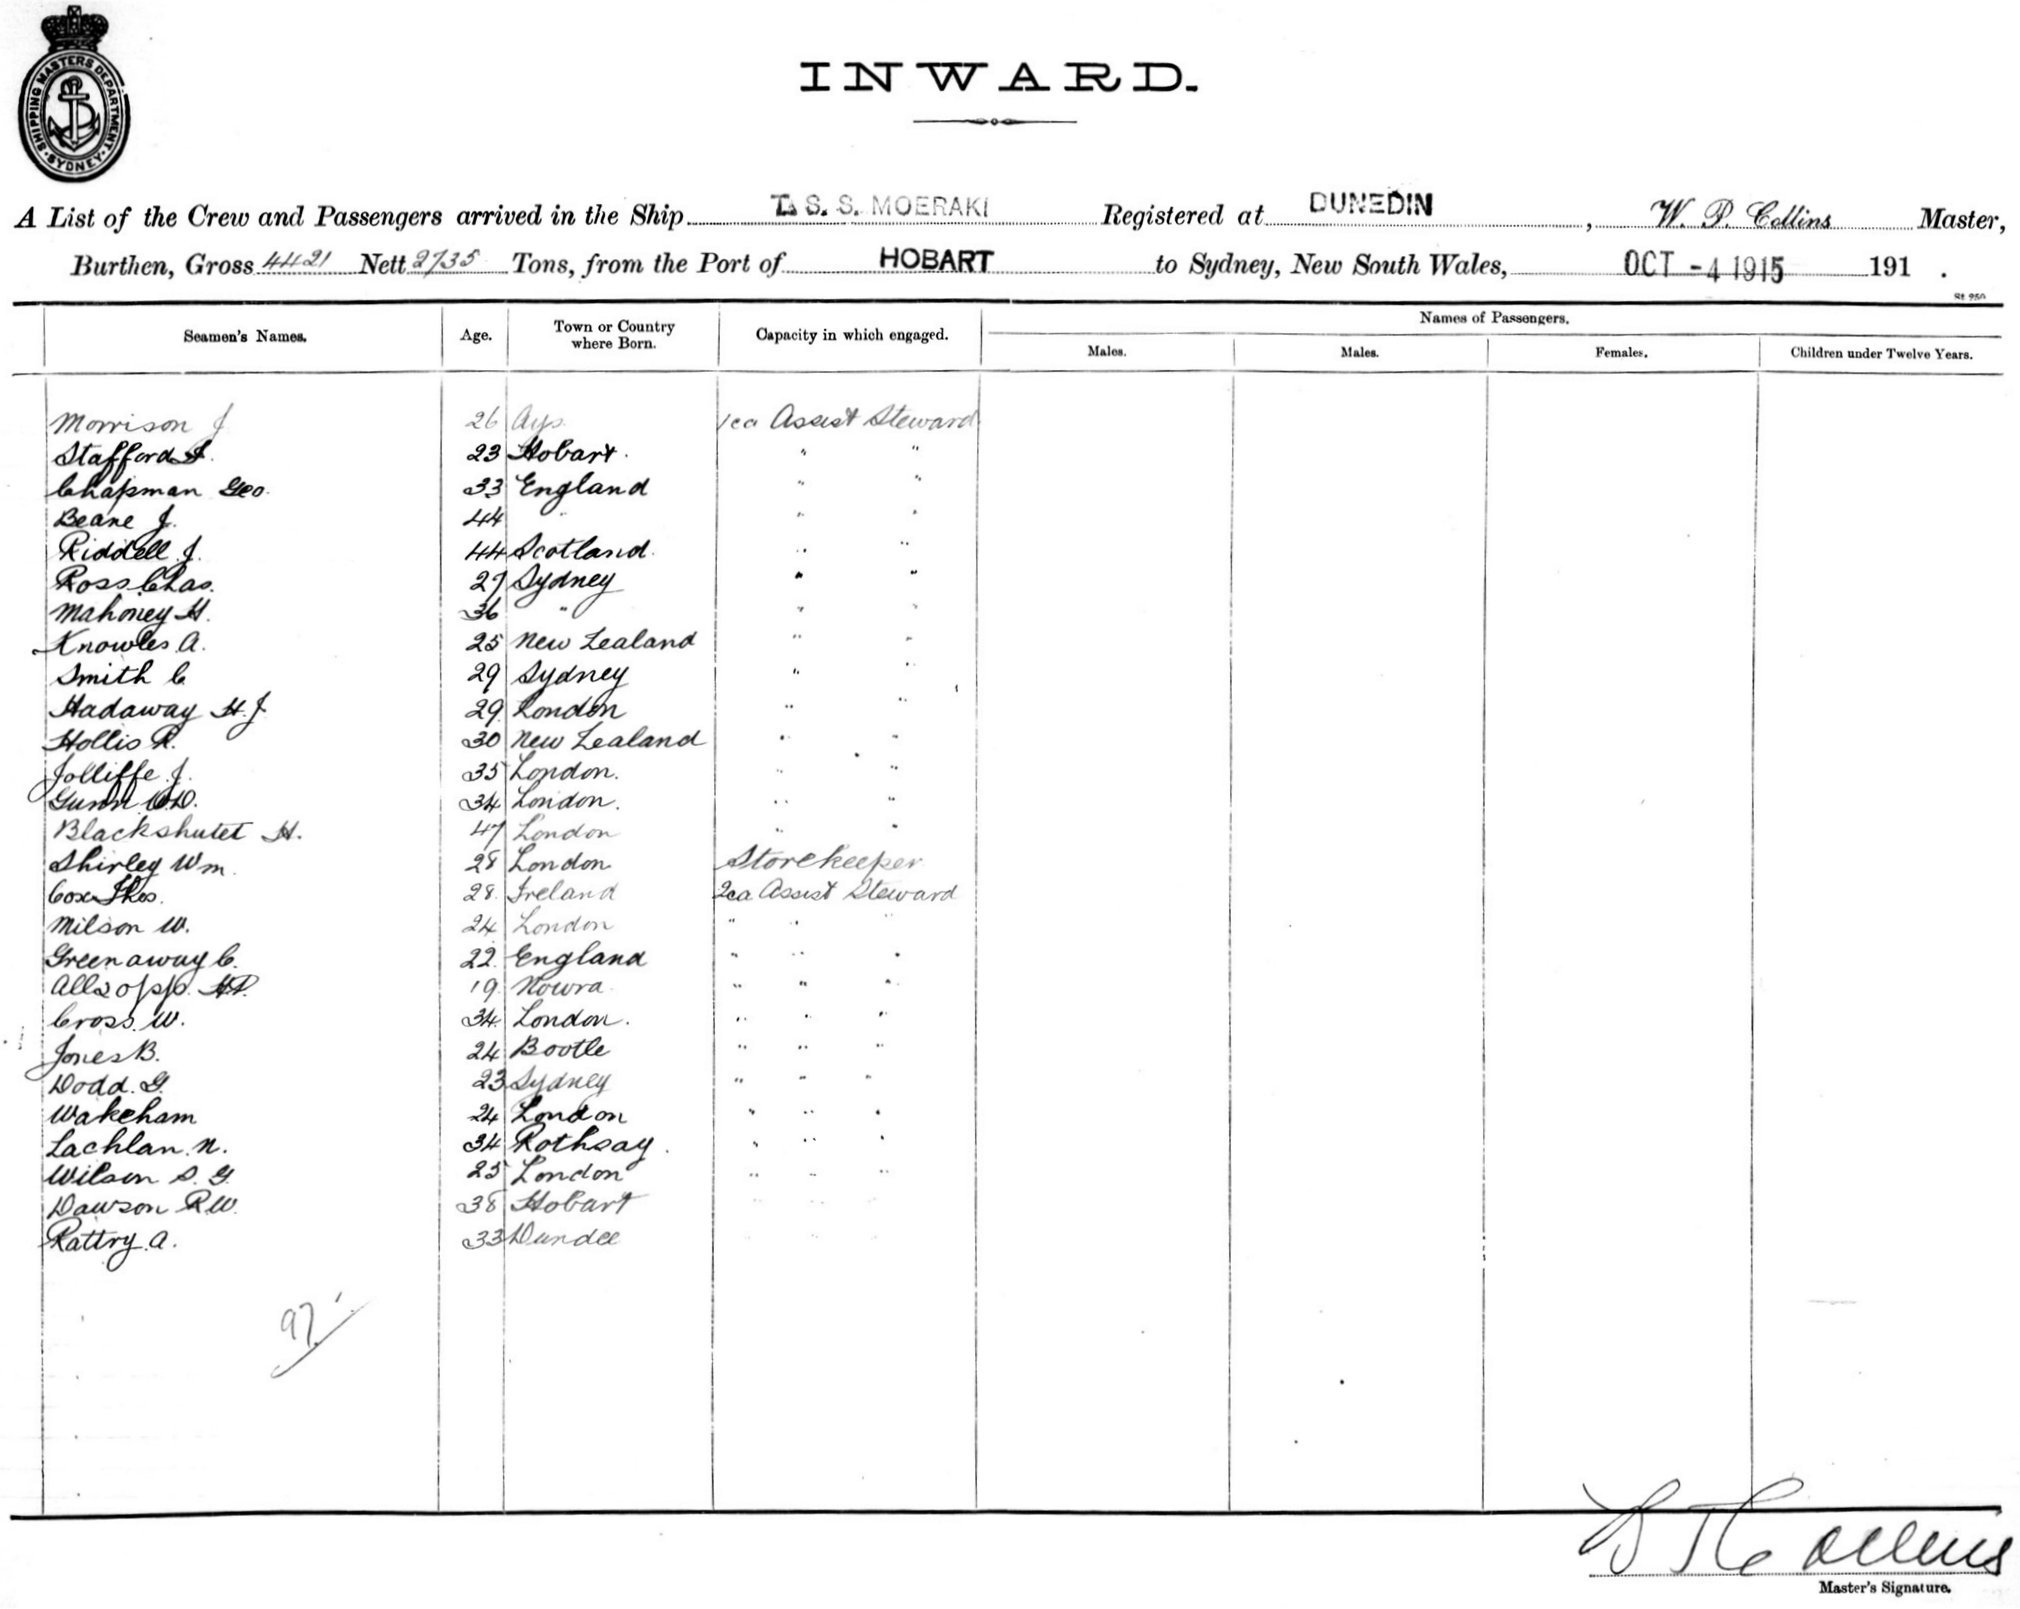 SHIPPING MASTERS DEPARTMENT
SYDNEY
INWARD.
A List of the Crew and Passengers arrived in the Ship T. S. S. MOERAKI Registered at DUNEDIN, W. P. Collins Master,
Burthen, Gross 4421 Nett 2735 Tons, from the Port of HOBART to Sydney, New South Wales, OCT -4 1915 191 .
St 250
Names of Passengers.
Seamen's Names. Age. Town or Country where Born. Capacity in which engaged. Males. Males. Females. Children under Twelve Years.
Morrison J 26 Ays 1ca Assist Steward
Stafford 23 Hobart. " "
Chapman Geo. 33 England " "
Beane J. 44 " " "
Riddell J. 44 Scotland. " "
Ross Chas. 27 Sydney " "
Mahoney H. 36 " " "
Knowles A. 25 New Zealand " "
Smith C 29 Sydney " "
Hadaway H. J. 29 London " "
Hollis R. 30 New Zealand " "
Jolliffe J. 35 London. " "
Gunn 34 London. " "
Blackshutet H. 47 London " "
Shirley Wm. 28 London Storekeeper
Cox Thos. 28. Ireland 2ca Assist Steward
Milson W. 24 London " " "
Greenaway C. 22. England " " "
Allsopp. 19. Nowra " " "
Cross. W. 34. London. " " "
Jones B. 24 Bootle " " "
Dodd. G. 23 Sydney " " "
Wakeham 24 London " " "
Lachlan. N. 34 Rothsay. " " "
Wilson S. G. 25 London " " "
Dawson R.W. 38 Hobart " " "
Rattry. A. 33 Dundee " " "
97
Collins
Master's Signature.